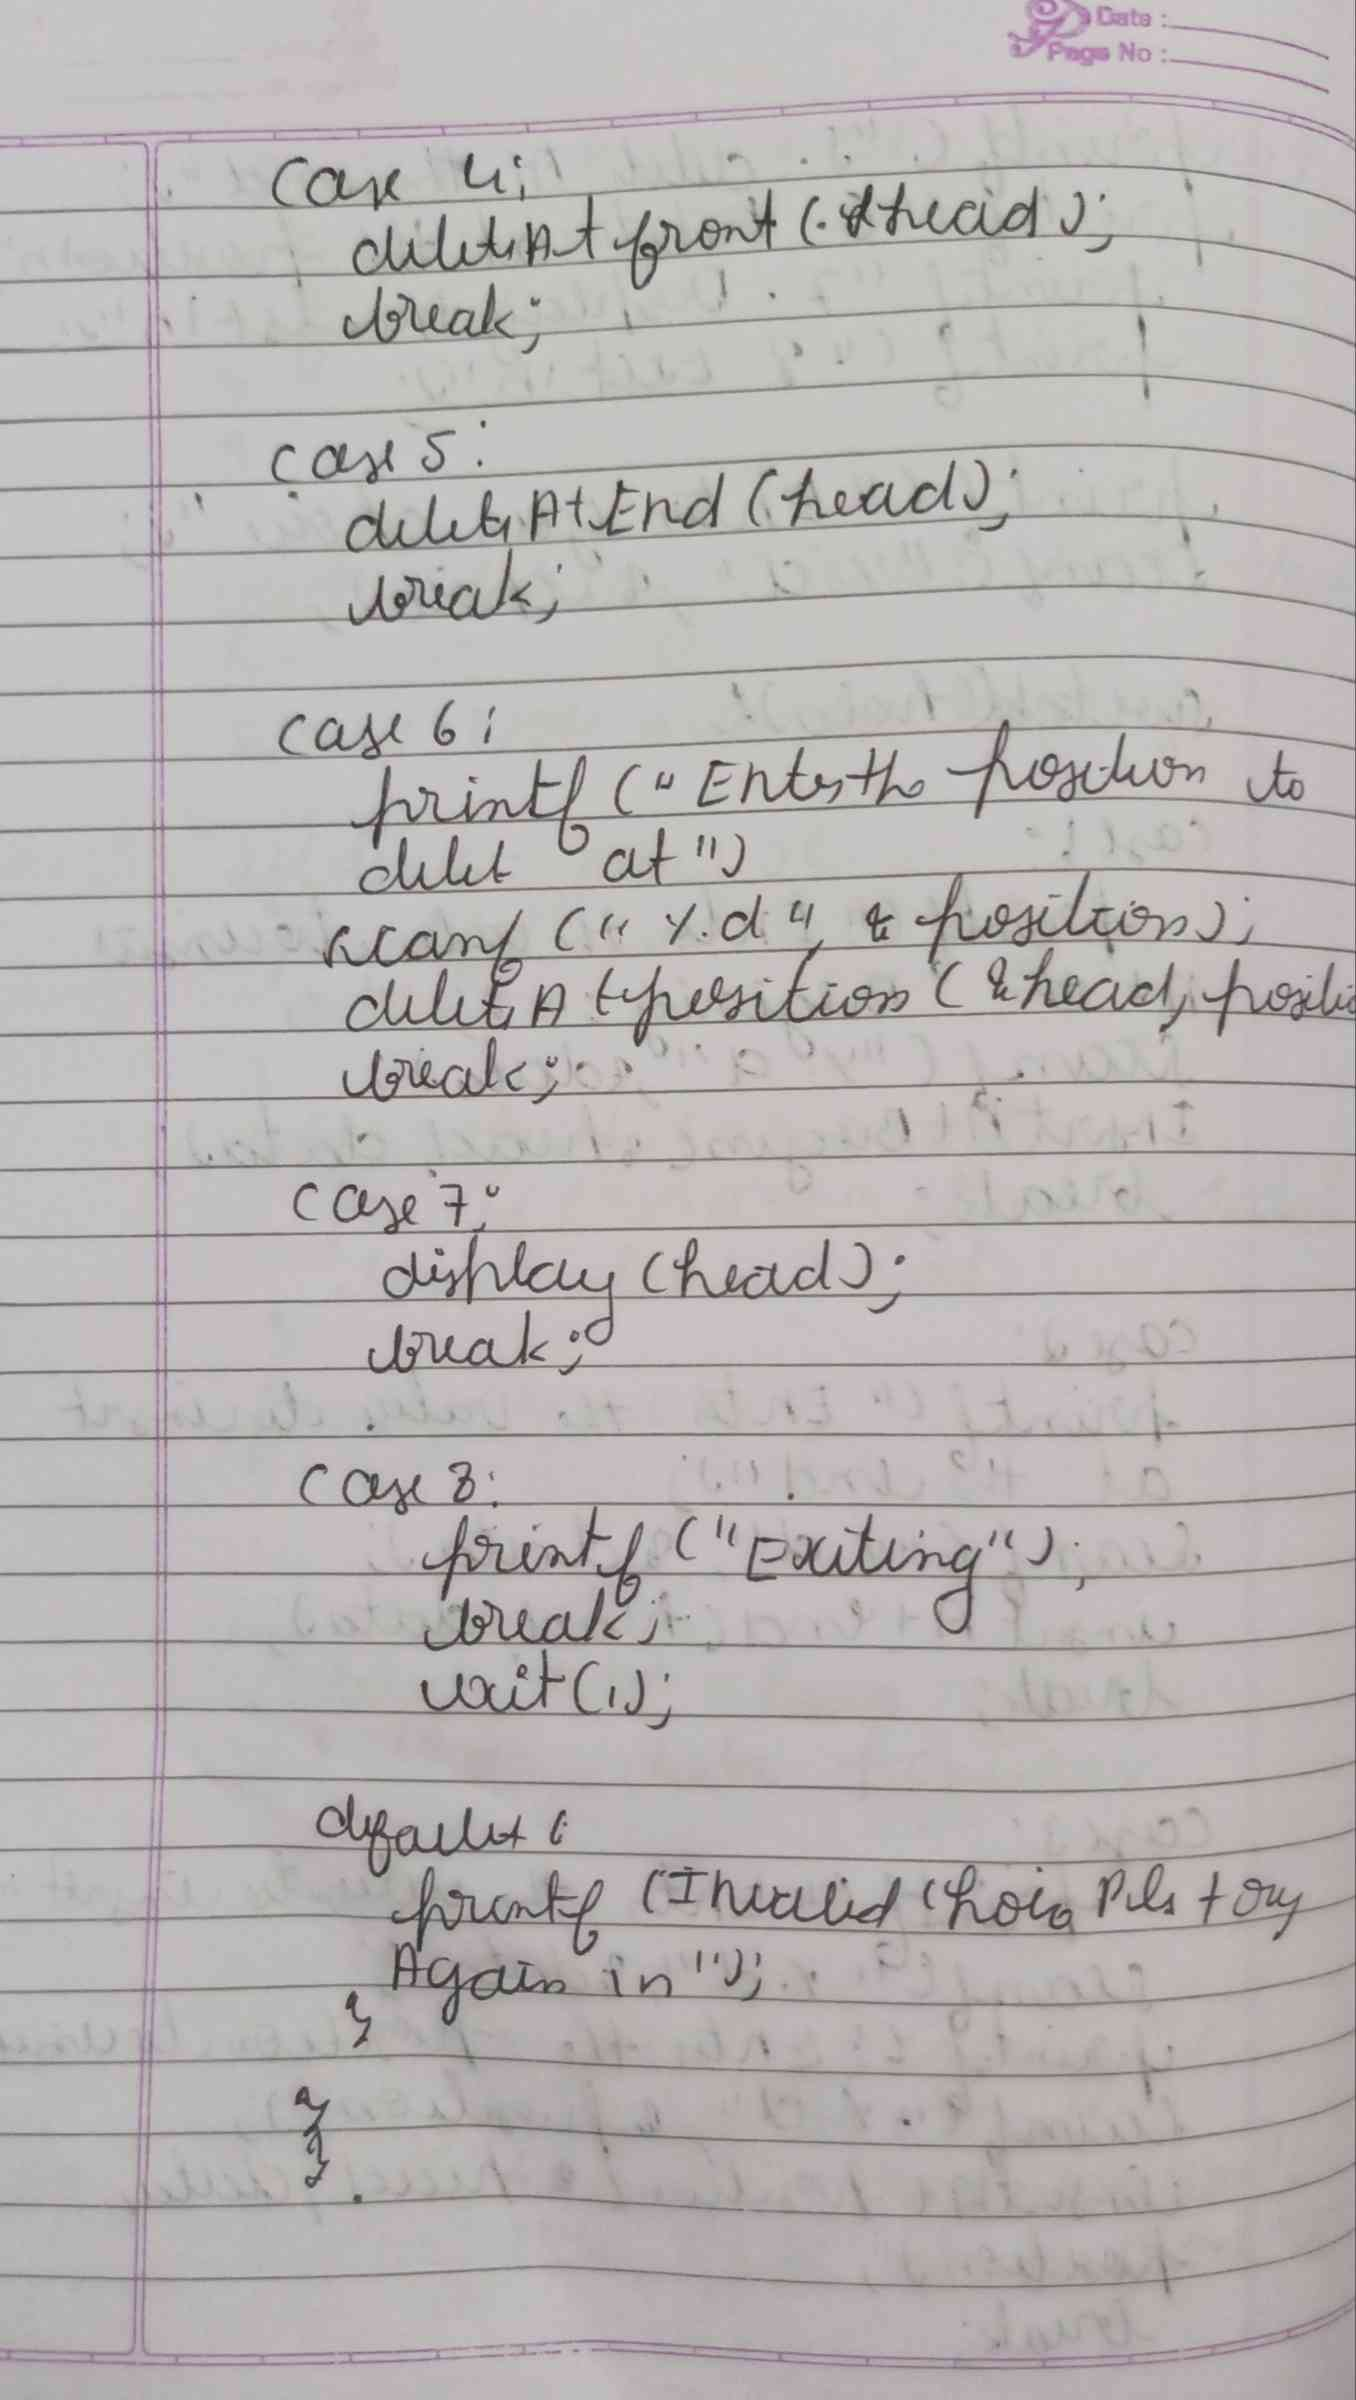 Date :
Page No :
case 4:
deleteAtfront (&head);
break;
case 5:
deleteAtEnd (head);
break;
case 6:
printf ("Enter the position to
delet at")
scanf ("%d", & position);
deleteAtposition (&head, positio
break;
case 7:
display (head);
break;
case 8:
printf ("Exiting");
break;
wait(1);
default:
printf (Invalid choice Pls try
Again in");
}
}
}